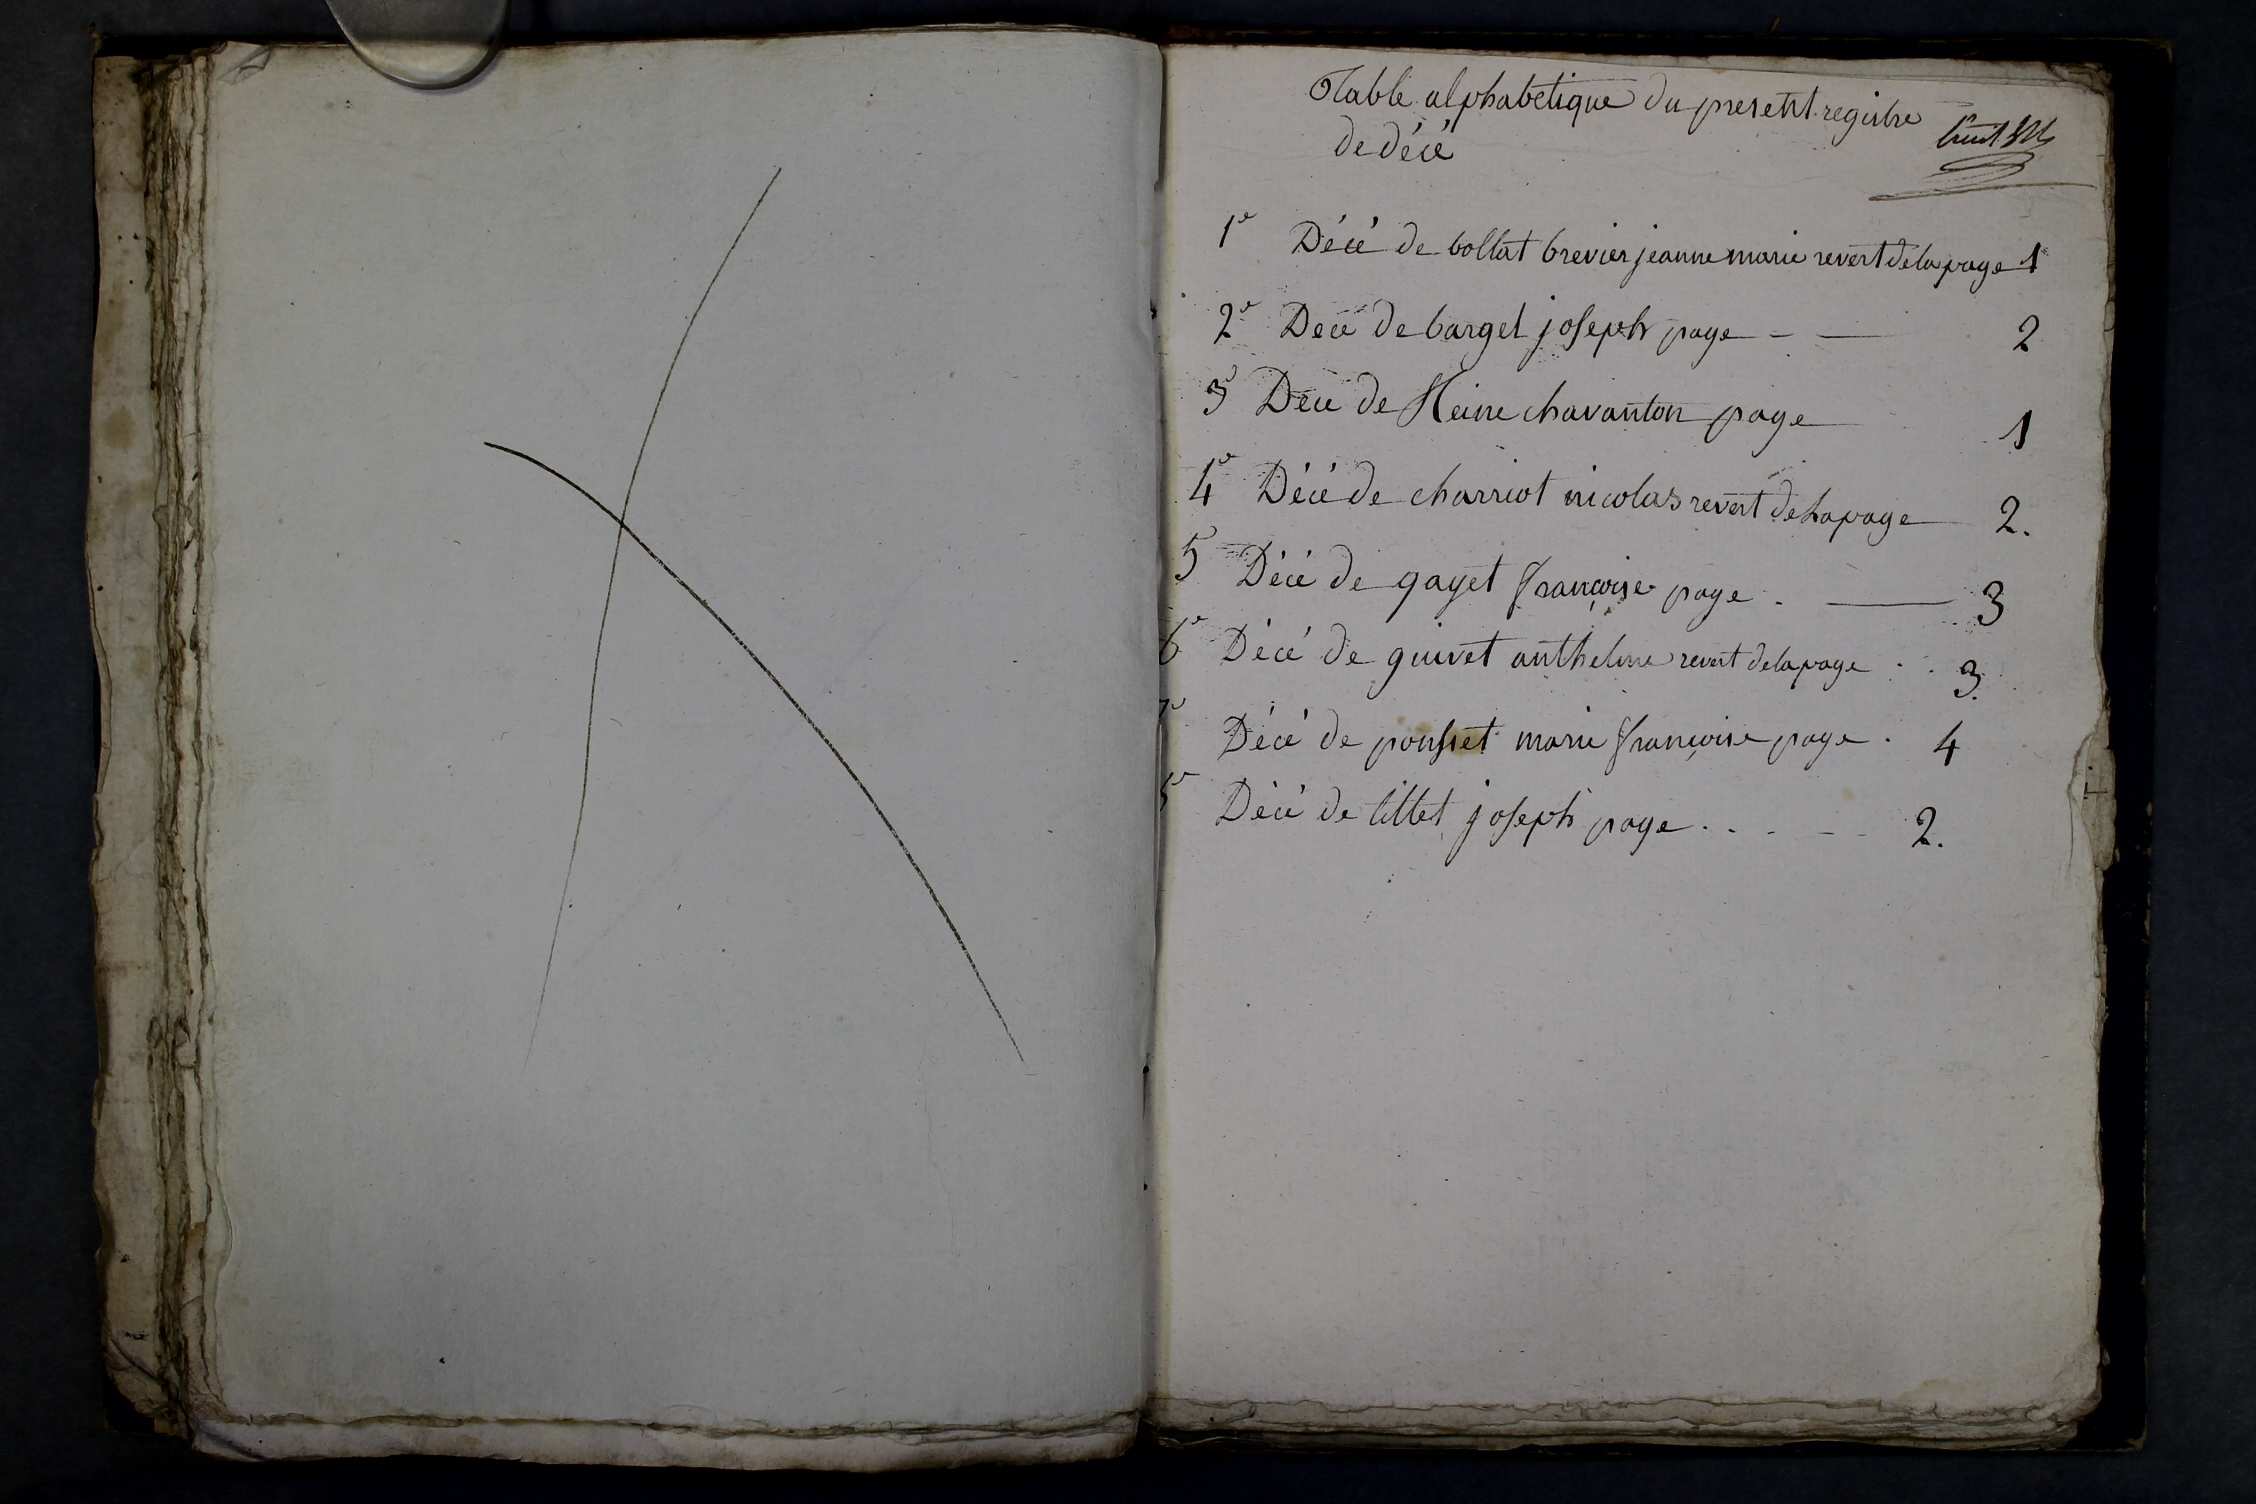 Table alphabetique du present registre
de décé
1e Décé de bollat brevier jeanne marie revert de la page 1
2e Décé de barget joseph page - — 2
3e Décé de Heine chavanton page 1
4e Décé de charriot nicolas revert de la page 2.
5 Décé de gayet françoise page . — 3
6e Décé de guivet anthelme revert de la page . . 3.
7e Décé de pousset marie françoise page . 4
Décé de tillet joseph page . . . - - 2.